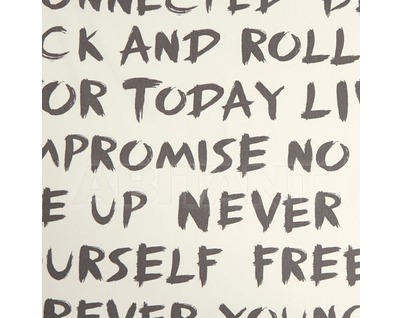 ONNECTED BE
CK AND ROLL
FOR TODAY LIV
MPROMISE NO
E UP NEVER
OURSELF FREE
OREVER YOUNG